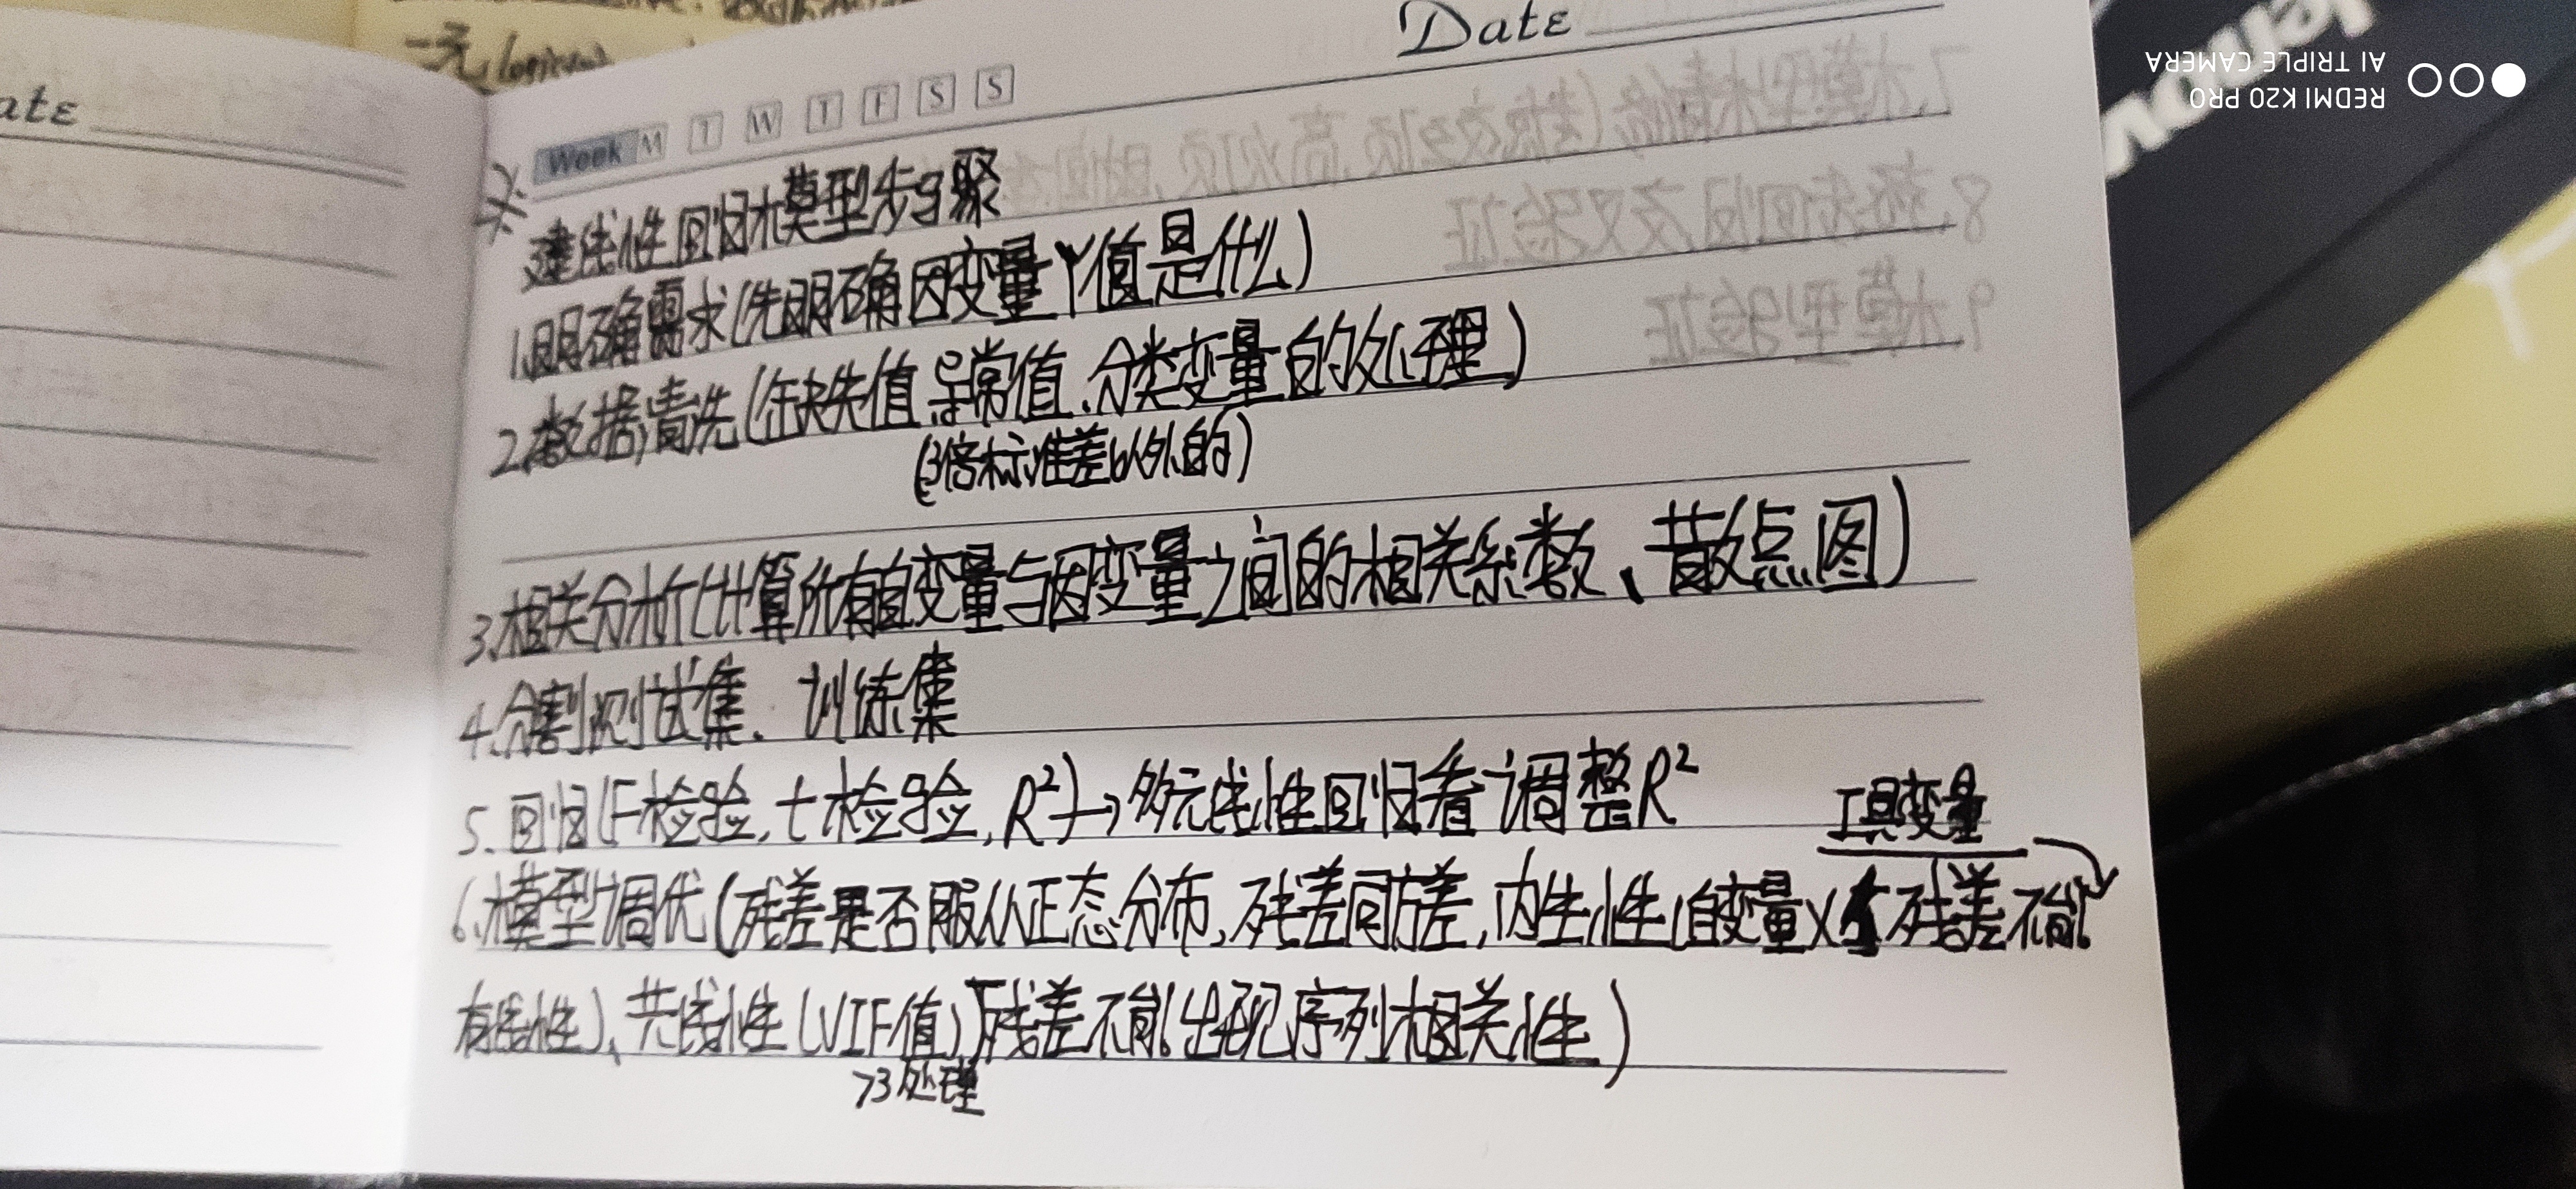 一元
Date
ate
Week M T W T F S S
※ 建线性回归模型步骤
1.明确需求(先明确因变量Y值是什么)
2.数据清洗(缺失值、异常值、分类变量的处理)
(3倍标准差以外的)
3.相关分析(计算所有自变量与因变量之间的相关系数、散点图)
4.分割测试集、训练集
5.回归(F检验,t检验,R²)→多元线性回归看调整R²
工具变量
6.模型调优(残差是否服从正态分布,残差同方差,内生性(自变量X与残差不能
有线性)、共线性(VIF值)残差不能出现序列相关性)
>3处理
7.模型精修(转换交互项,高次项,
8.拯失回归,交叉验证
9.模型验证
REDMI K20 PRO
AI TRIPLE CAMERA